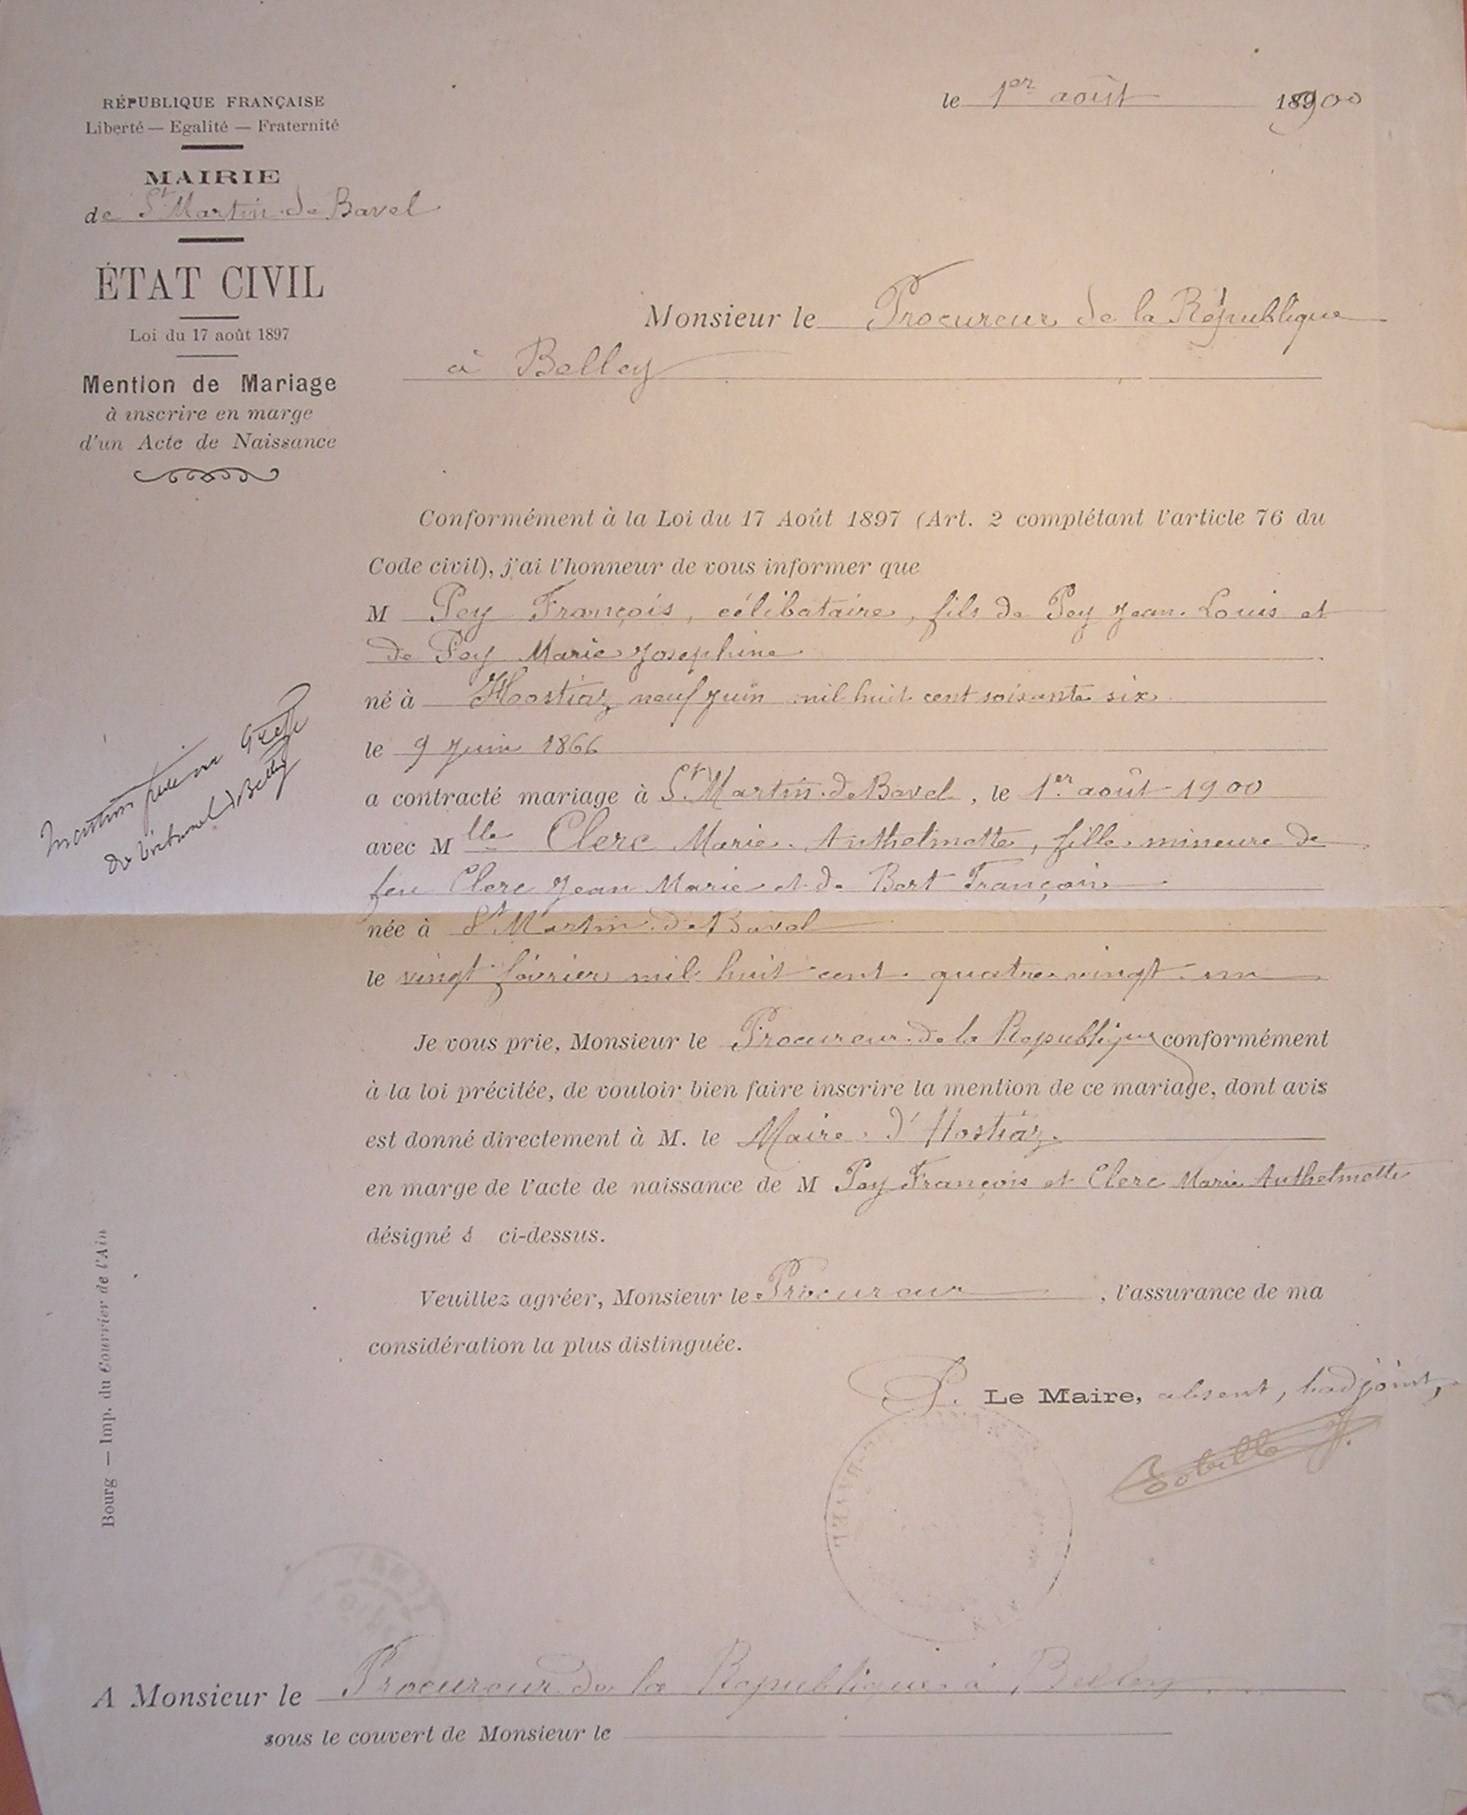 RÉPUBLIQUE FRANÇAISE
Liberté — Egalité — Fraternité
MAIRIE
de St Martin de Bavel
ÉTAT CIVIL
Loi du 17 août 1897
Mention de Mariage
à inscrire en marge
d'un Acte de Naissance
le 1er août 1900
Monsieur le Procureur de la République
à Belley
Conformément à la Loi du 17 Août 1897 (Art. 2 complétant l'article 76 du
Code civil), j'ai l'honneur de vous informer que
M Pey François, célibataire, fils de Pey Jean Louis et
de Pey Marie Josephine
né à Hostiaz neuf juin mil huit cent soisante six
le 9 Juin 1866
a contracté mariage à St Martin de Bavel, le 1er août 1900
avec Mlle Clerc Marie Anthelmette, fille mineure de
feu Clerc Jean Marie et de Bert Françoise
née à St Martin de Bavel
le vingt février mil huit cent quatre vingt un
Je vous prie, Monsieur le Procureur de la Republique conformément
à la loi précitée, de vouloir bien faire inscrire la mention de ce mariage, dont avis
est donné directement à M. le Maire d'Hostiaz
en marge de l'acte de naissance de M Pey François et Clerc Marie Anthelmette
désigné s ci-dessus.
Veuillez agréer, Monsieur le Procureur, l'assurance de ma
considération la plus distinguée.
P. Le Maire, absent, l'adjoint,
au greffe
du tribunal de Belley
Bourg — Imp. du Courrier de l'Ain
BAVEL
AIN
A Monsieur le Procureur de la Republique à Belley
sous le couvert de Monsieur le